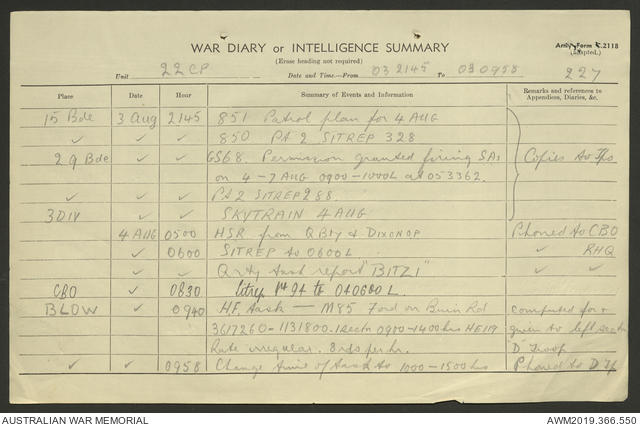 Army Form C.2118
WAR DIARY or INTELLIGENCE SUMMARY (Adapted.)
(Erase heading not required)
Unit 22 CP Date and Time—From 03 2145 To 03 0958 227
Place Date Hour Summary of Events and Information Remarks and references to Appendices, Diaries, &c.
15 Bde 3 Aug 2145 851 Patrol plan for 4 AUG
✓ ✓ ✓ 850 PA 2 SITREP 328
29 Bde ✓ ✓ GS68. Permission granted firing SAs Copies to
on 4-7 AUG 0900-1000L at 053362.
✓ ✓ ✓ PA2 SITREP 288
3 DIV ✓ ✓ SKYTRAIN 4 AUG
4 AUG 0500 HSR from Q Bty & DIXONOP Phoned to CBO
✓ 0600 SITREP to 0600L ✓ RHQ
✓ ✓ Q task report "BITZI" ✓ ✓
CBO ✓ 0830 Sitrep to 040600L.
BLOW ✓ 0940 HF task — M85 Ford on Buin Rd computed for &
3617260-1131800. 0900-1400 hrs HE119 given to left
Rate irregular. 8 rds per hr. D Troop
✓ ✓ 0958 Change time of task to 1000-1500 hrs Phoned to D Tp
AUSTRALIAN WAR MEMORIAL AWM2019.366.550